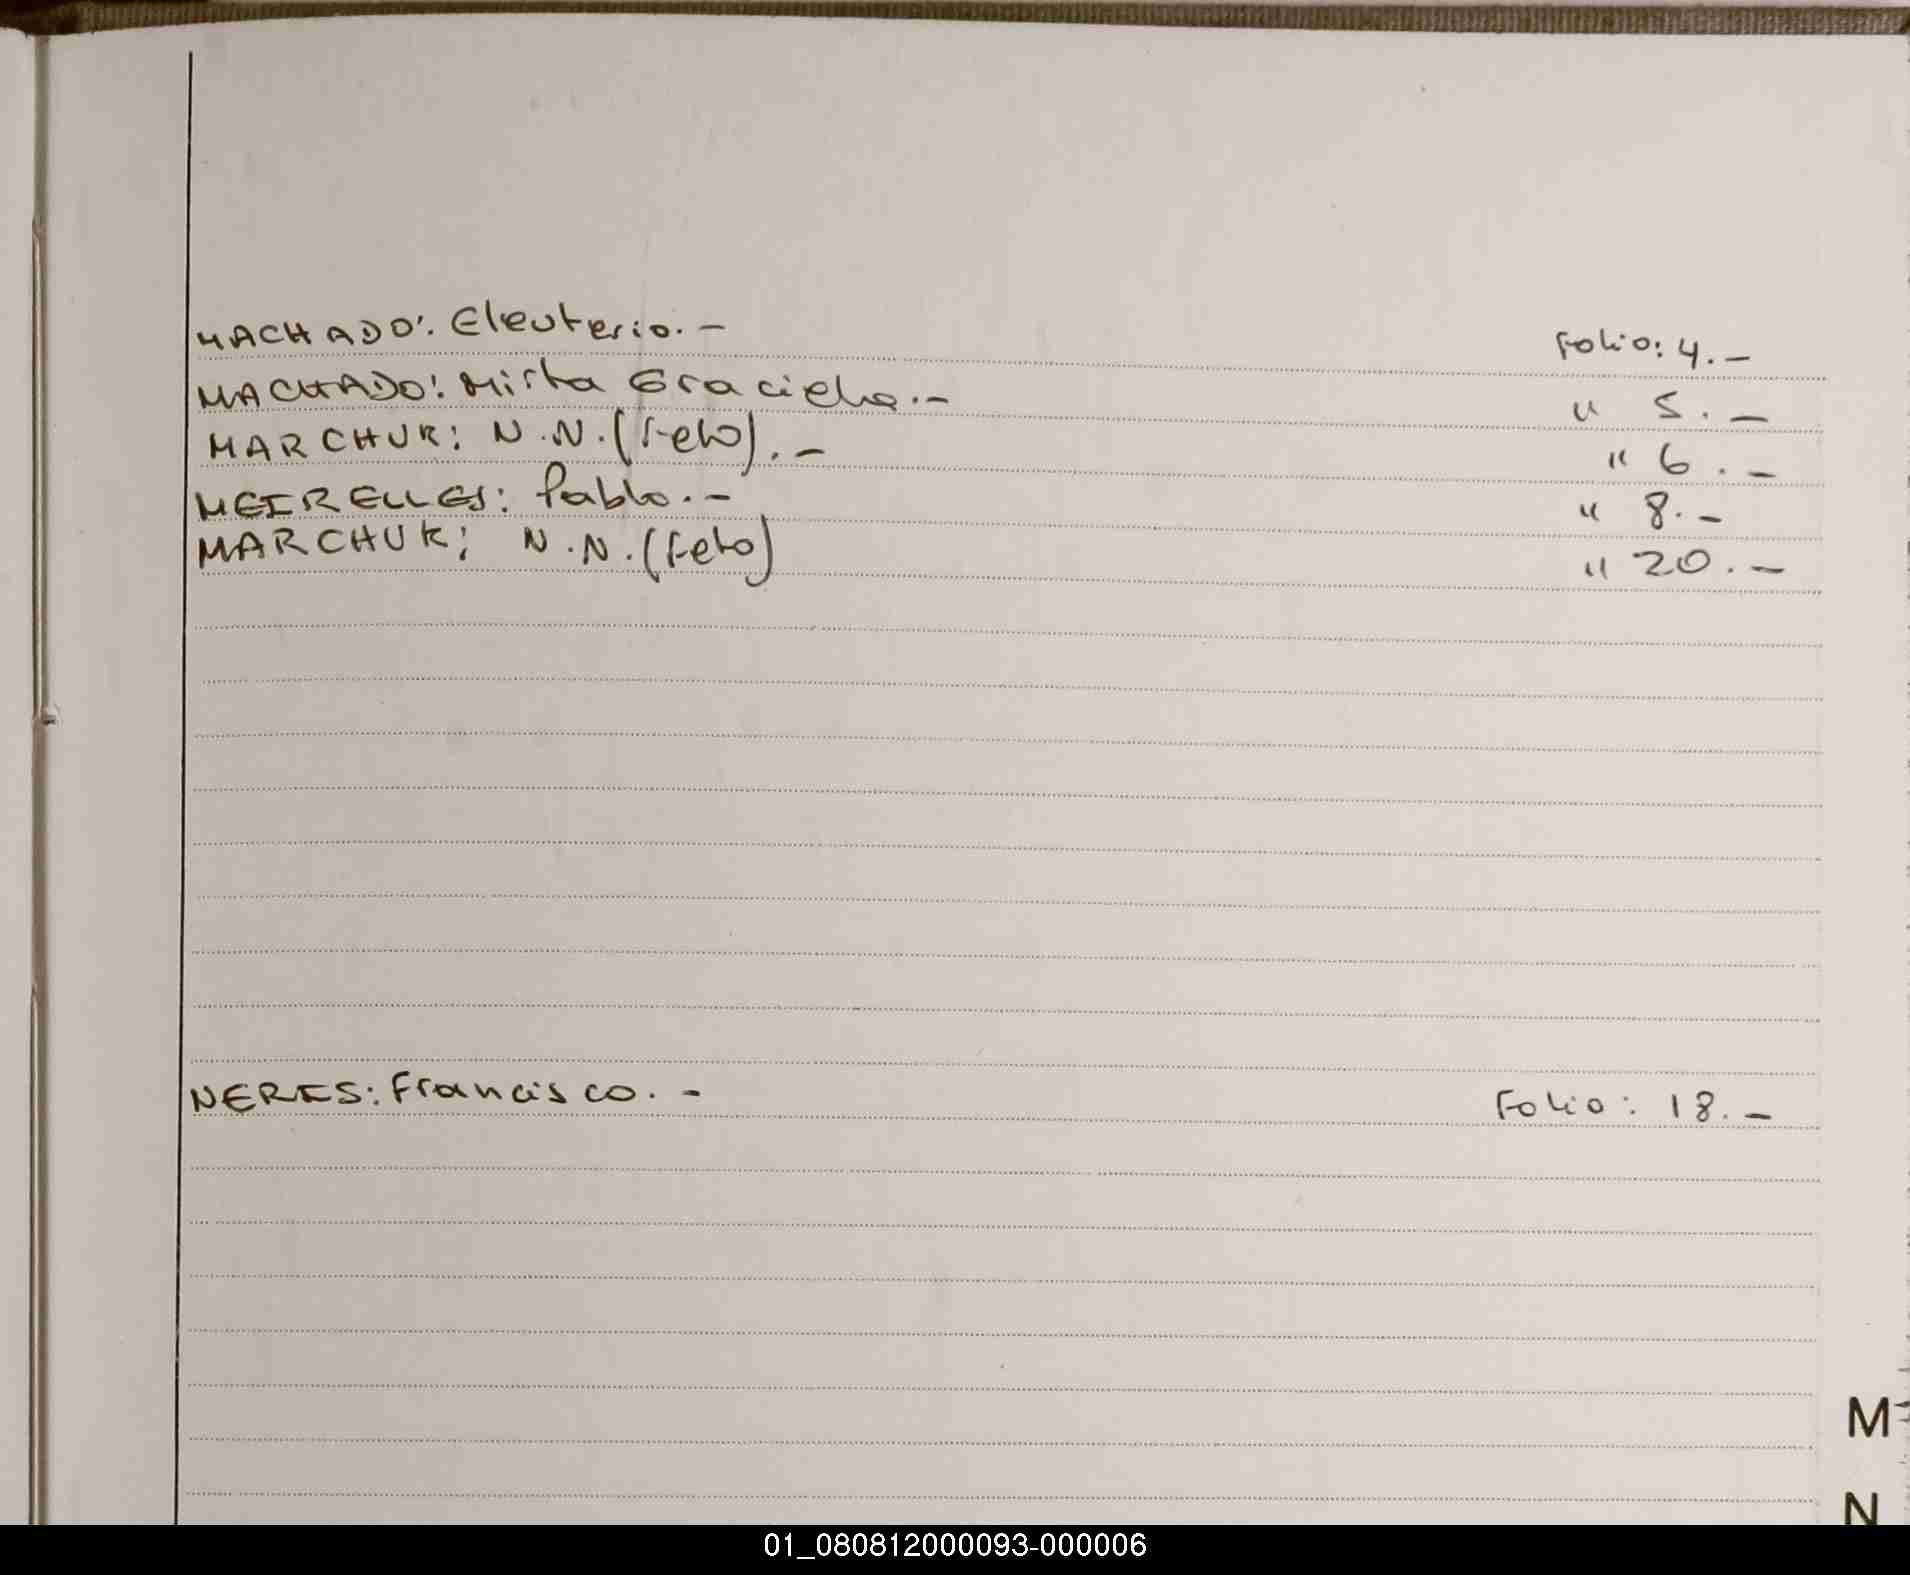 MACHADO: Eleuterio.- Folio: 4.-
MACHADO: Mirta Graciela.- " 5.-
MARCHUK: N.N. (Feto).- " 6.-
MEIRELLES: Pablo.- " 8.-
MARCHUK: N.N. (Feto) " 20.-
NERES: Francisco.- Folio: 18.-
M
N
01_080812000093-000006